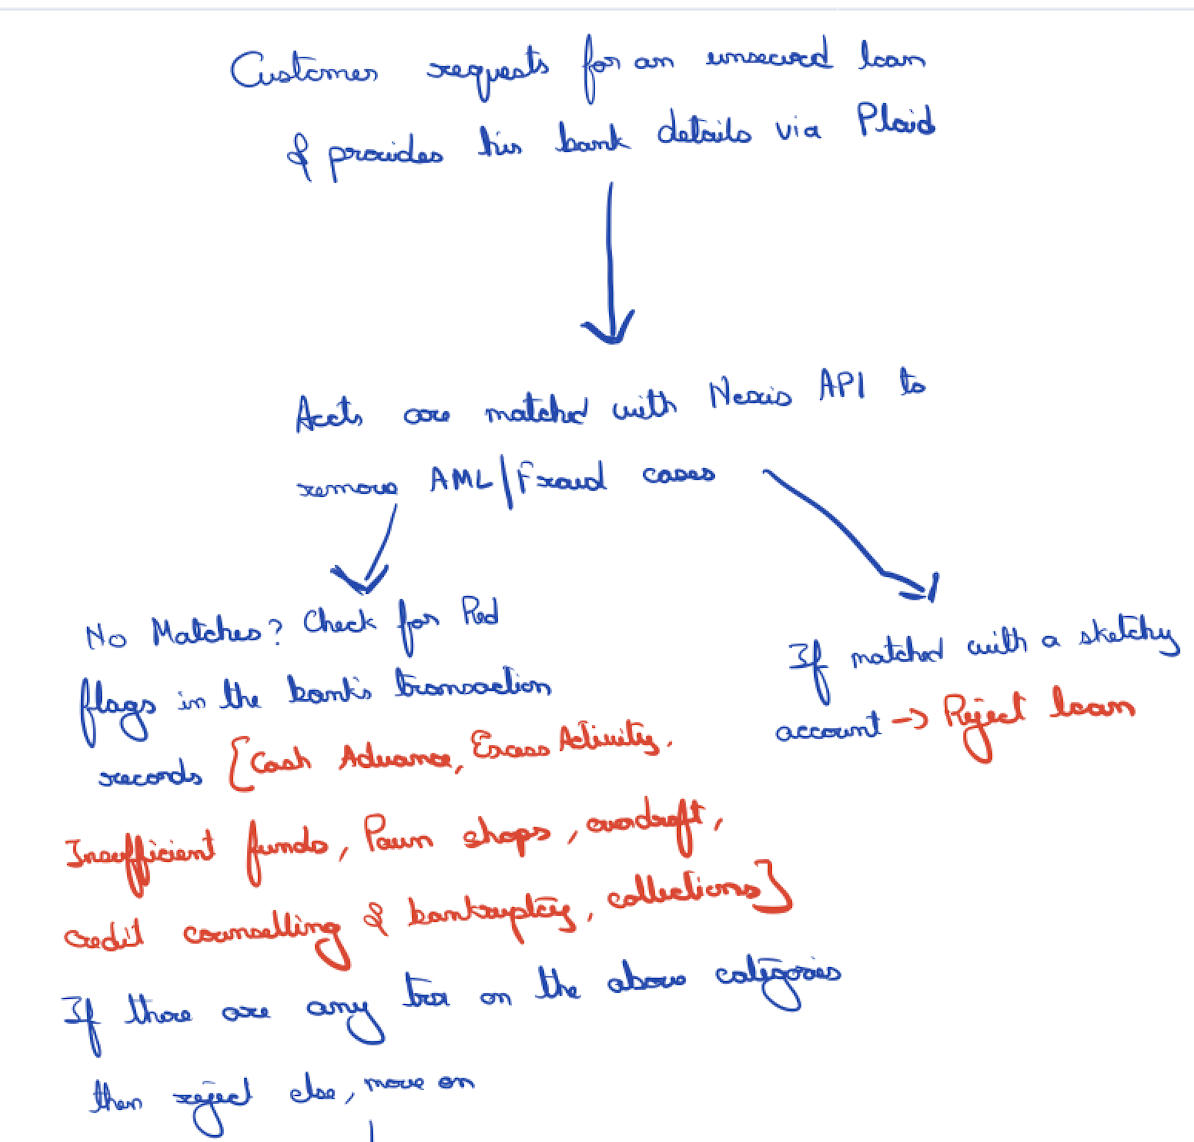 Customer requests for an unsecured loan
& provides his bank details via Plaid
Accts are matched with Nexis API to
remove AML/Fraud cases
No Matches? Check for Red
flags in the bank's transaction
records [Cash Advance, Excess Activity,
Insufficient funds, Pawn shops, overdraft,
credit counselling & bankruptcy, collections]
If there are any trx on the above categories
then reject else, move on
If matched with a sketchy
account -> Reject loan